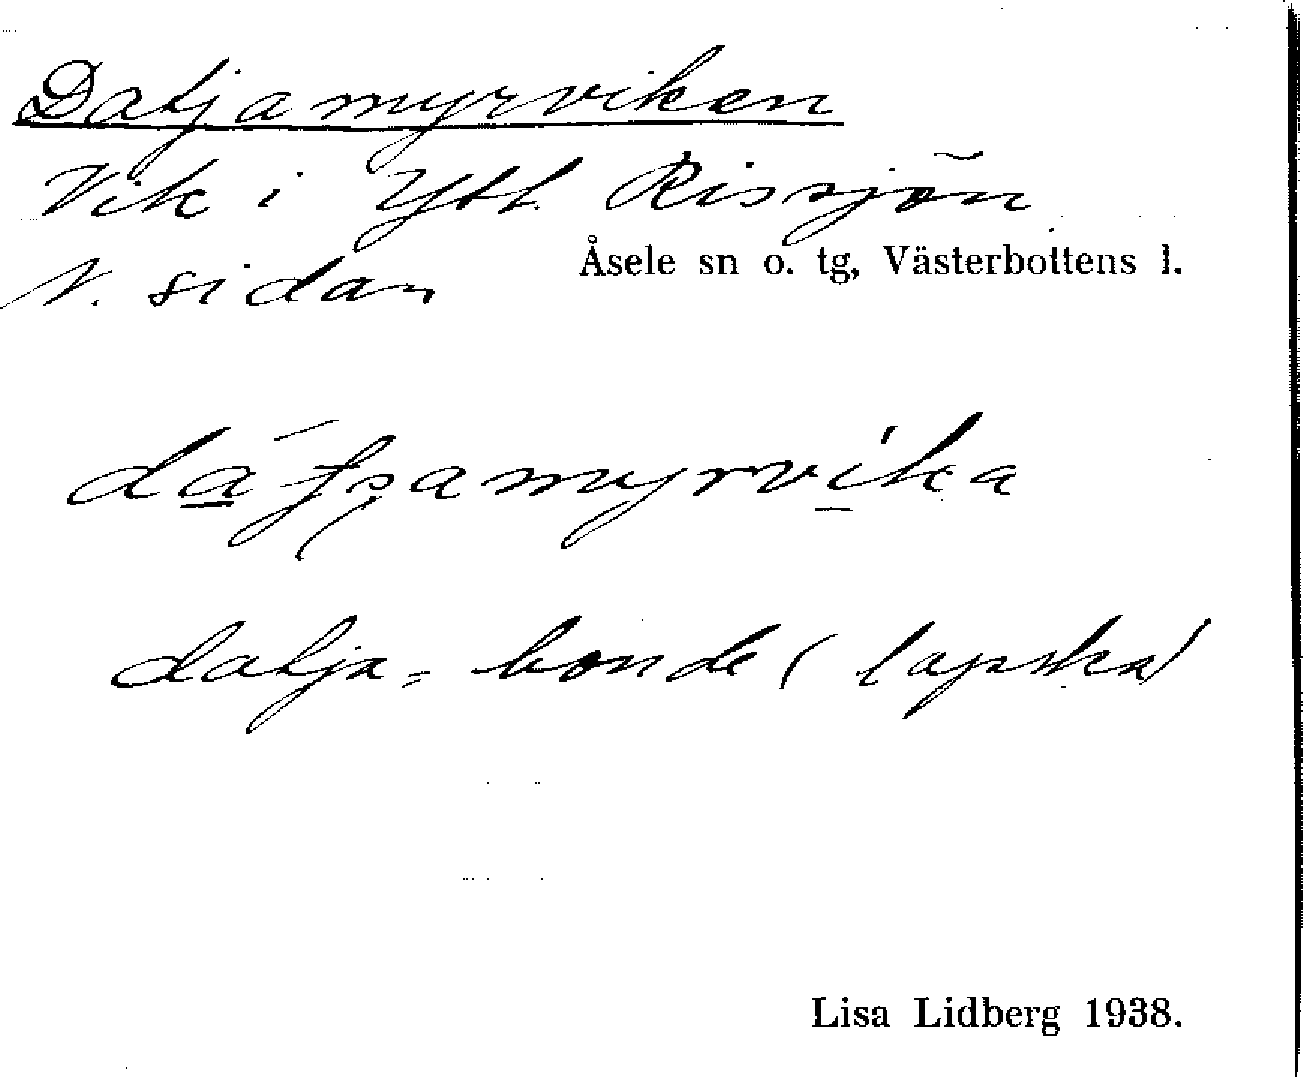 Datjamyrviken
Vik i Ytt. Rissjön
N. sidan
Åsele sn o. tg, Västerbottens l.
datja = bonde (lapska)
Lisa Lidberg 1938.